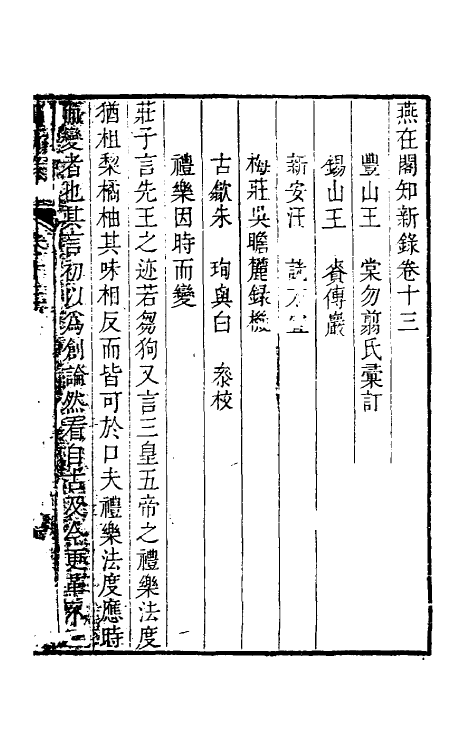 燕在閣知新錄卷十三
豐山王　棠勿翦氏彙訂
錫山王　賡傳巖
新安汪
梅莊吳瞻麓錄
古歙朱　珣與白　叅校
禮樂因時而變
莊子言先王之迹若芻狗又言三皇五帝之禮樂法度
猶柤棃橘柚其味相反而皆可於口夫禮樂法度應時
而變者也其言初以爲創論然看自古及今更革